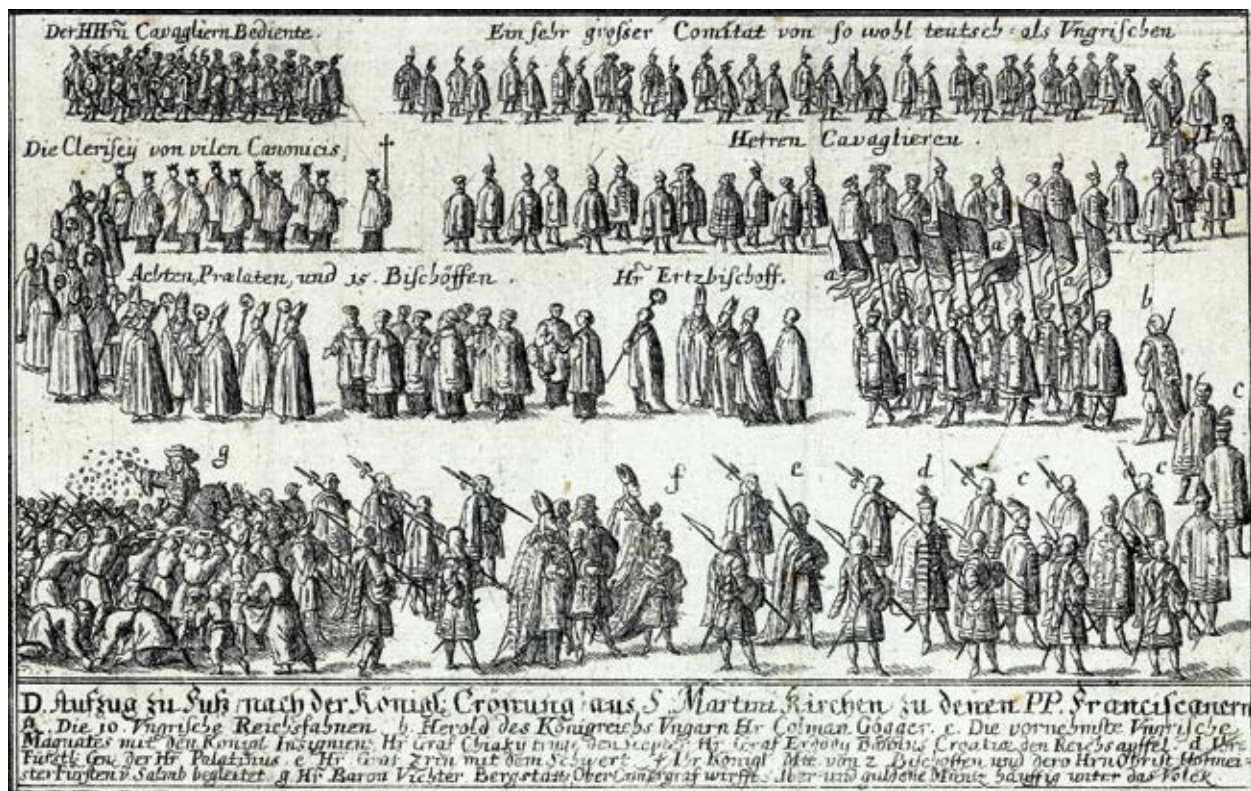 Der HHrn Cavagliern Bediente.
Ein sehr grosser Comitat von so wohl teutsch: als Vngrischen
Die Clerisey von vilen Canonicis,
Herren Cavaglieren.
Achten, Prælaten, und 15. Bischöffen.
Hr Ertzbischoff.
a
a
a
b
c
g
f
e
d
c
c
D. Aufzug zu Fuß nach der Königl. Crönung aus S. Martini Kirchen zu denen PP. Franciscanern
a. Die 10. Vngrische Reichsfahnen. b. Herold des Königreichs Vngarn Hr Colman Gögger. c. Die vornehmste Vngrische
Magnates mit den Königl Insignien, Hr Graf Chiaky den Scepter Hr Graf Erdödy Croatiæ den Reichsapffel. d
Fürstl. Gn. der Hr Palatinus. e Hr Graf Zrin mit dem Schwert. f Ihr Königl Mtt. von 2 Bischoffen und dero Hrn Obrist Hofmei-
ster Fürsten v. Salmb begleitet. g Hr Baron Viechter Ober Camergraf wirfft Silber und guldene Müntz häuffig unter das Volck.